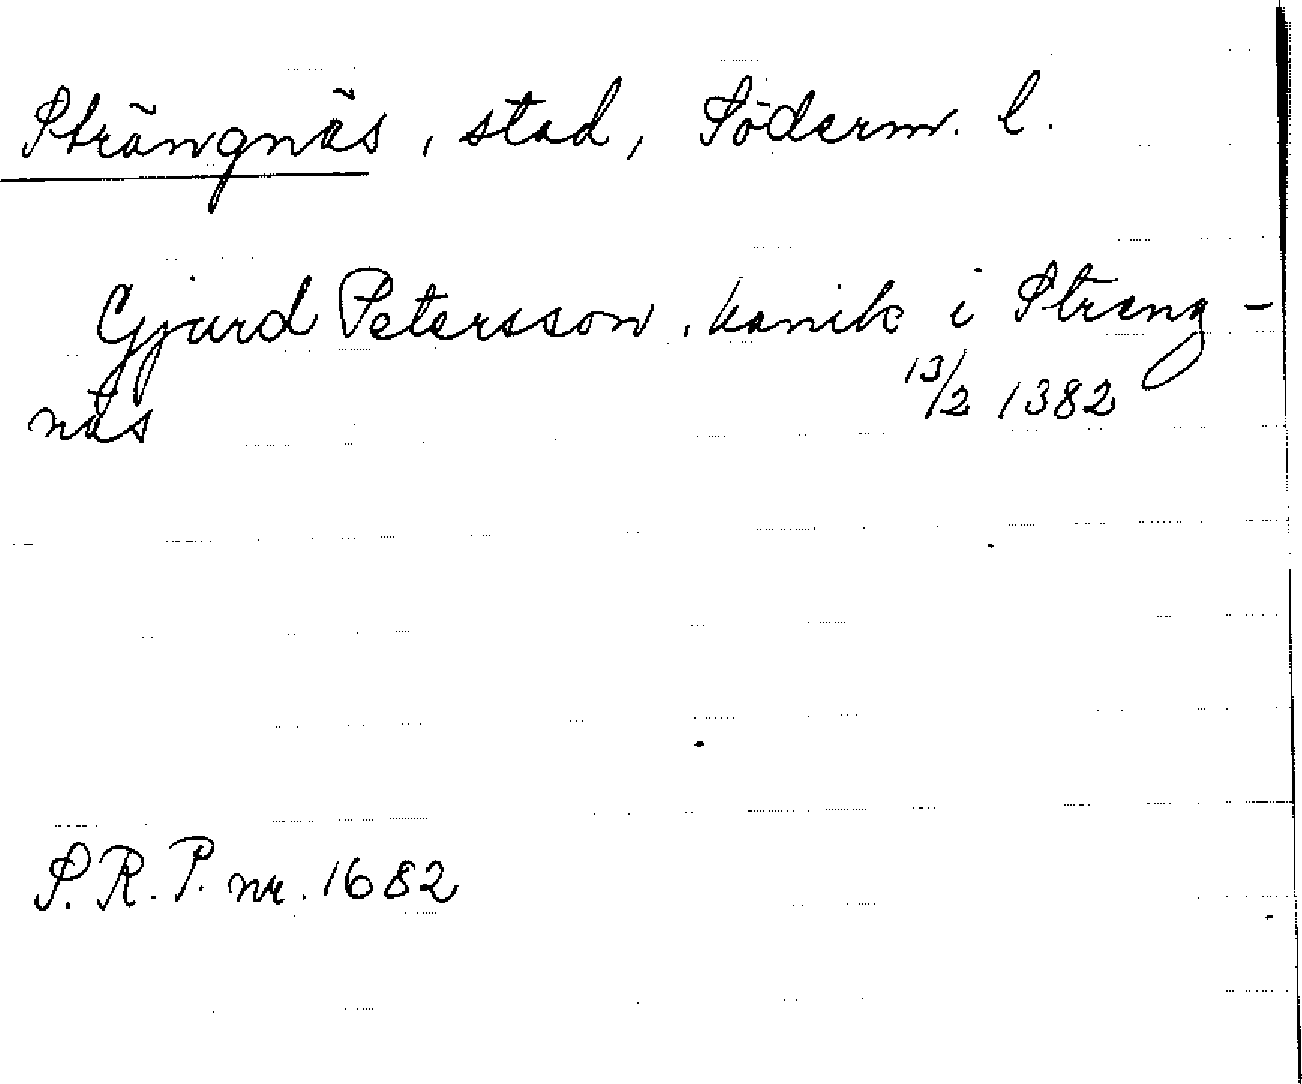 Strängnäs, stad, Söderm. l.
Gjurd Petersson, kanik i Streng-
näs 13/2 1382
S. R. P. nr. 1682